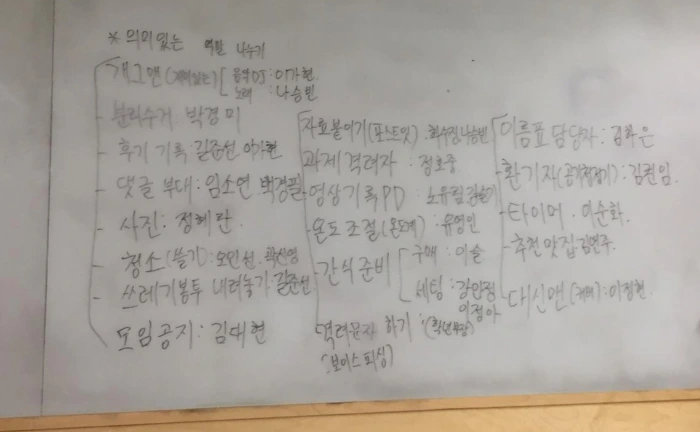 * 의미있는 역할 나누기
개그맨 (재미있는) [ 음악DJ : 이가현
노래 : 나승빈
- 분리수거 박경미
- 후기 기록 : 길준선 이가현
- 댓글 부대 : 임소연 박경필
- 사진 : 정혜란
- 청소 (쓸기) : 오인선. 곽신영
- 쓰레기봉투 내려놓기 길준선
모임공지 : 김대현
자료붙이기 (포스트잇) : 최수정 나승빈
- 과제 격려자 : 정호중
- 영상기록PD : 노유림
- 온도 조절 (온도계) : 유영인
- 간식 준비 [ 구매 : 이슬
세팅 : 강안정
이정아
격려문자 하기 : (학년부장)
(보이스피싱)
이름표 담당자 : 김하은
- 환기자 (공기청정기) : 김현임
- 타이머 . 이순화
- 추천 맛집 김연주
- 대신맨 : 이정현